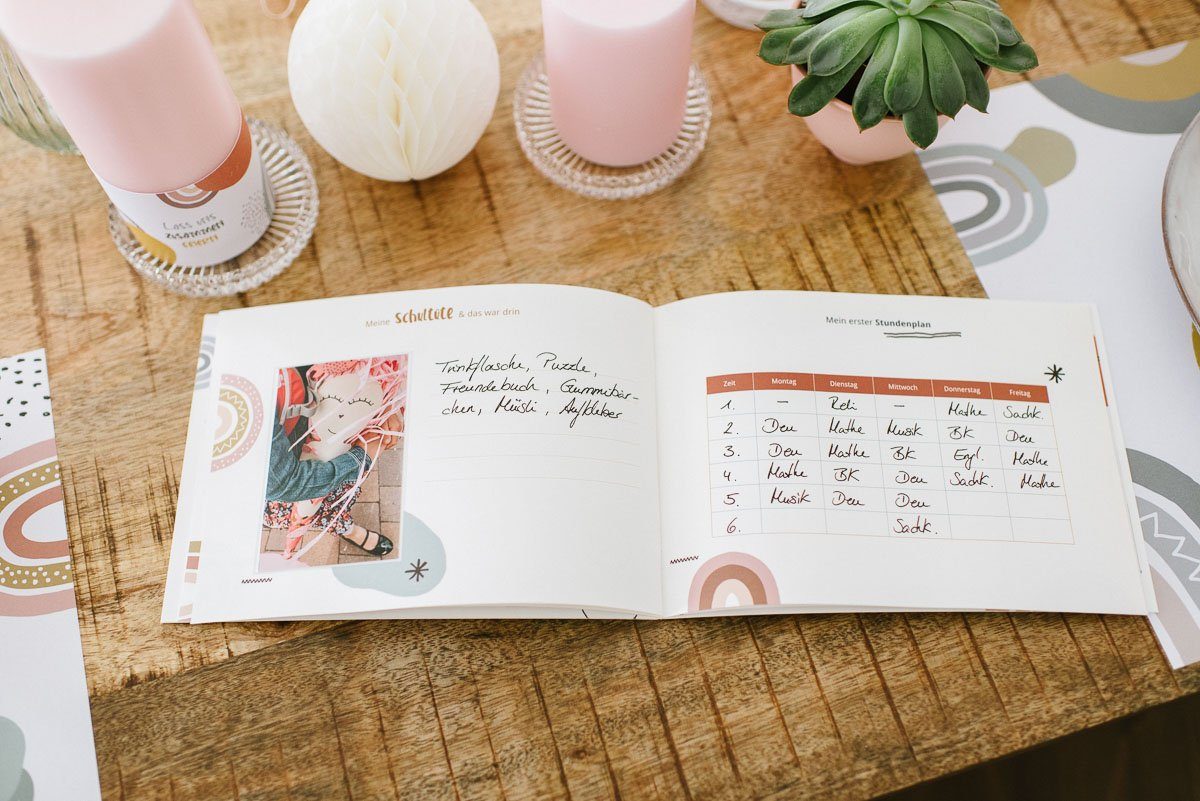 Lass uns
zusammen
feiern
Meine Schultüte & das war drin
Trinkflasche, Puzzle,
Freundebuch, Gummibär-
chen, Müsli, Aufkleber
Mein erster Stundenplan
Zeit Montag Dienstag Mittwoch Donnerstag Freitag
1. – Reli – Mathe Sachk.
2. Deu Mathe Musik BK Deu
3. Deu Mathe BK Engl. Mathe
4. Mathe BK Deu Sachk. Mathe
5. Musik Deu Deu
6. Sachk.